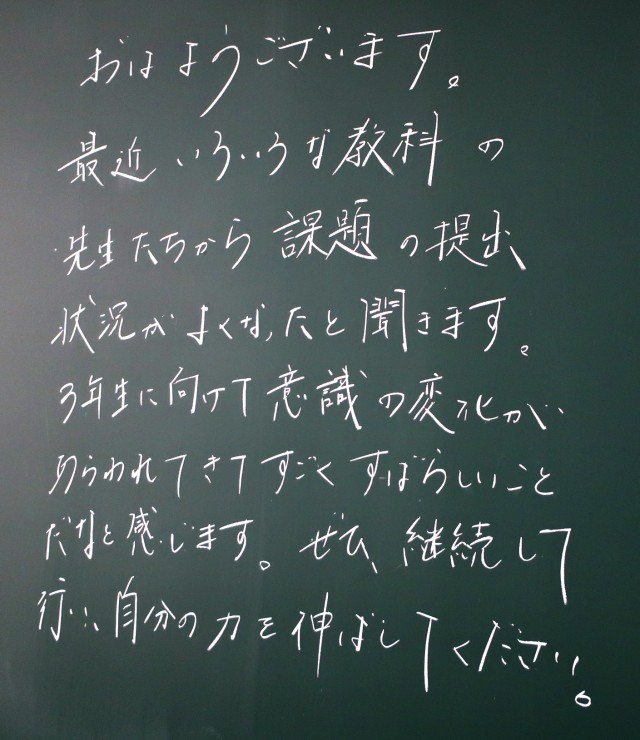 おはようございます。
最近いろいろな教科の
先生たちから課題の提出
状況がよくなったと聞きます。
3年生に向けて意識の変化が
あらわれてきてすごくすばらしいこと
だなと感じます。ぜひ、継続して
行い、自分の力を伸ばしてください。